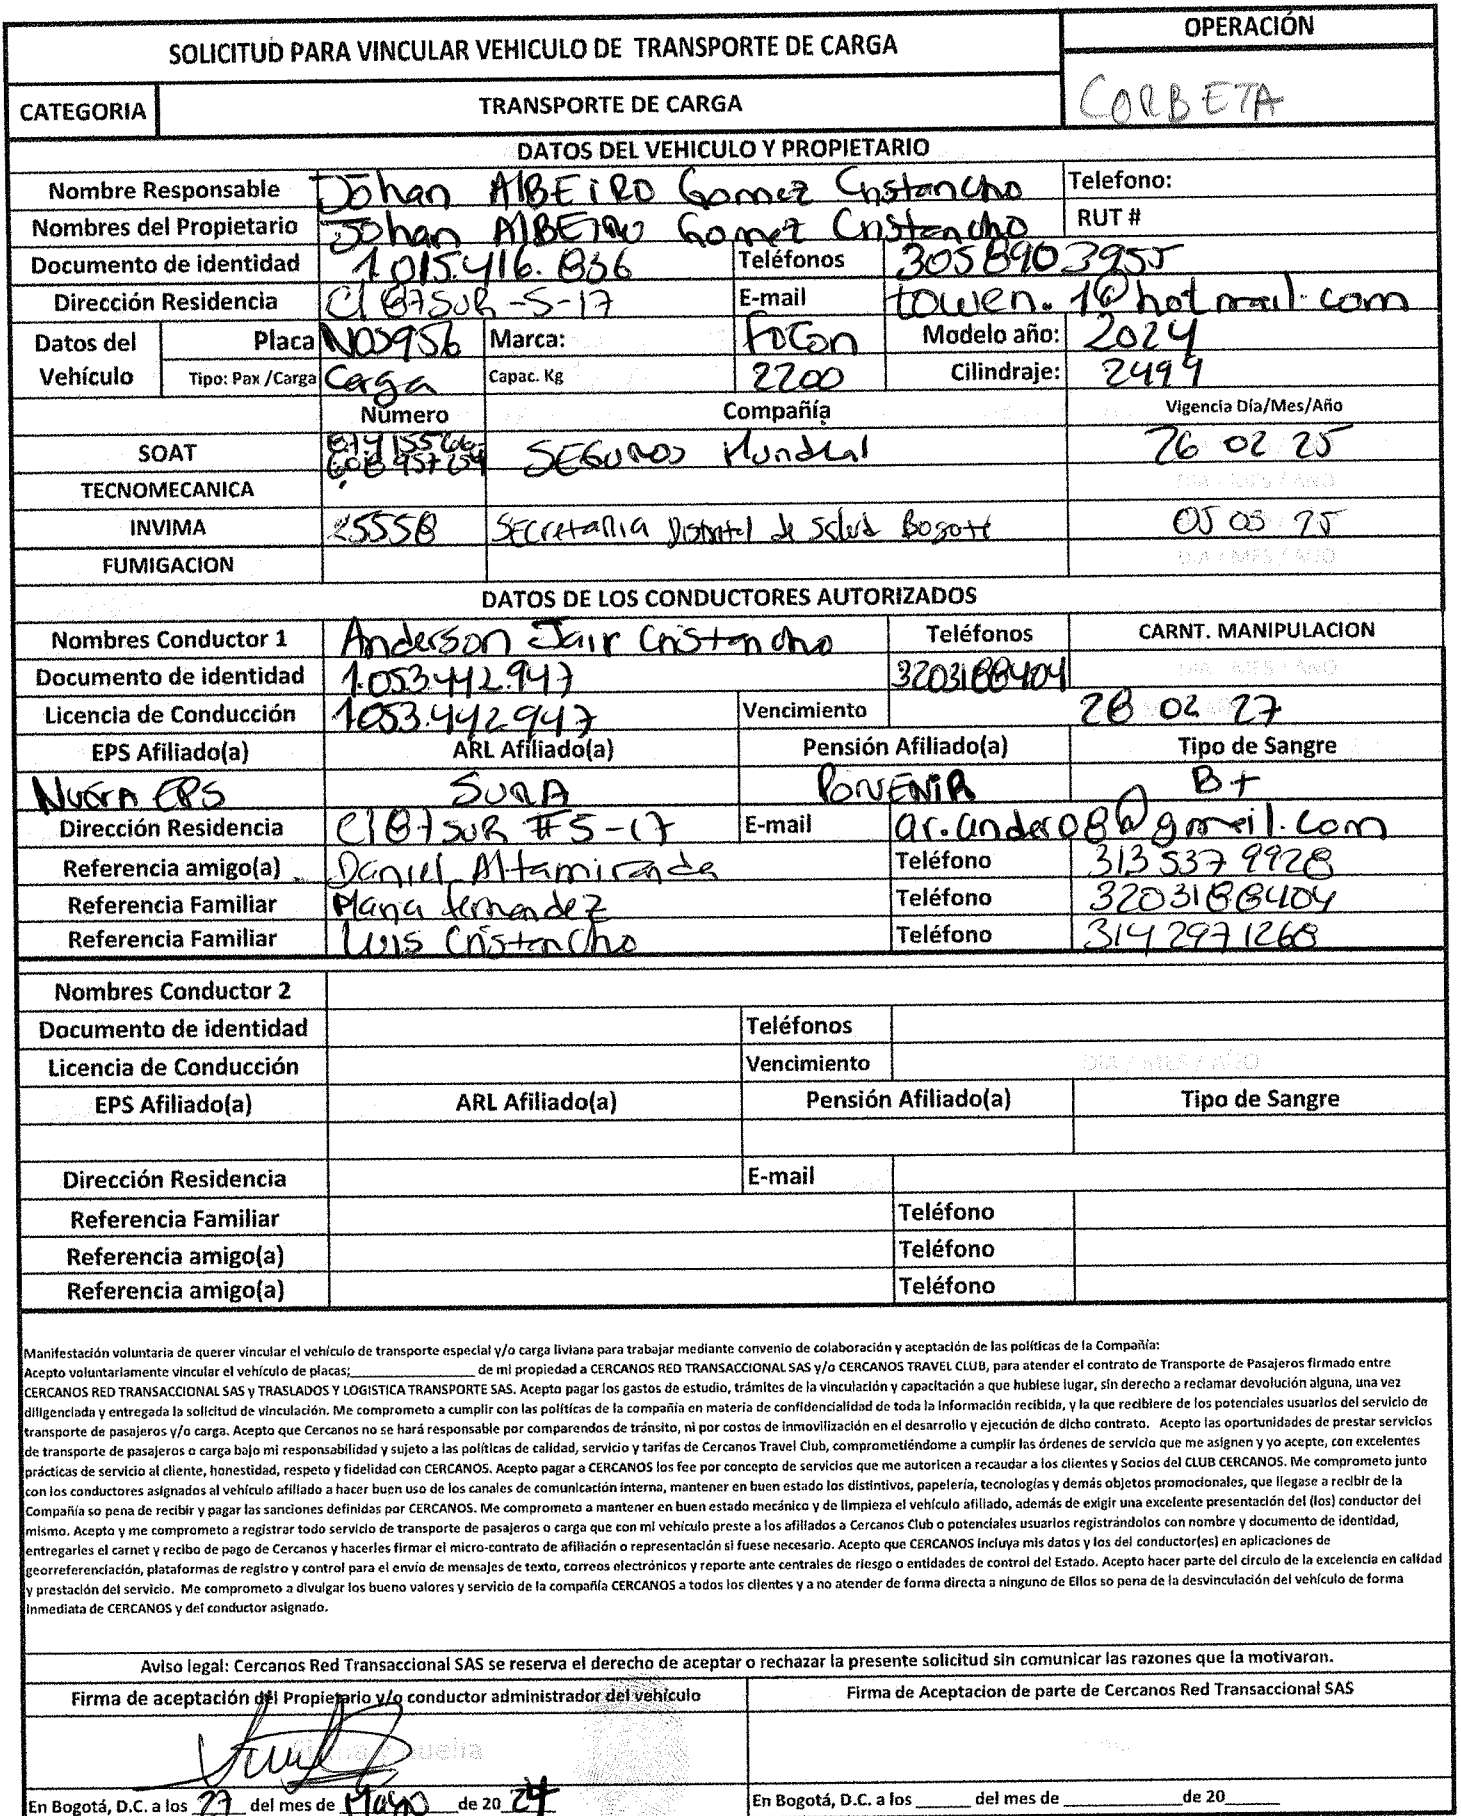 SOLICITUD PARA VINCULAR VEHICULO DE TRANSPORTE DE CARGA
OPERACIÓN
CATEGORIA TRANSPORTE DE CARGA CORBETA
DATOS DEL VEHICULO Y PROPIETARIO
Nombre Responsable Johan AlBEiRO Gomez Cristancho Telefono:
Nombres del Propietario Johan AlBEiRO Gomez Cristancho RUT #
Documento de identidad 1.015.416.836 Teléfonos 3058903955
Dirección Residencia Cl 87 SUR -5-17 E-mail towen.1@hotmail.com
Datos del Vehículo Placa NOS956 Marca: FOTON Modelo año: 2024
Tipo: Pax /Carga Carga Capac. Kg 2200 Cilindraje: 2499
Número Compañía Vigencia Día/Mes/Año
SOAT SEGUROS Mundial 26 02 25
TECNOMECANICA DIA / MES / AÑO
INVIMA 25558 SEcretaria Distrital de Salud Bogotá 05 05 25
FUMIGACION DIA / MES / AÑO
DATOS DE LOS CONDUCTORES AUTORIZADOS
Nombres Conductor 1 Anderson Jair Cristancho Teléfonos CARNT. MANIPULACION
Documento de identidad 1.053.442.947 3203188404 DIA / MES / AÑO
Licencia de Conducción 1053.442947 Vencimiento 28 02 27
EPS Afiliado(a) ARL Afiliado(a) Pensión Afiliado(a) Tipo de Sangre
NUEVA EPS SURA PORVENIR B+
Dirección Residencia Cl 87 SUR #5-17 E-mail ar.ander08@gmail.com
Referencia amigo(a) Daniel Altamiranda Teléfono 313 537 9928
Referencia Familiar Maria fernandez Teléfono 3203188404
Referencia Familiar Luis Cristancho Teléfono 314 2971268
Nombres Conductor 2
Documento de identidad Teléfonos
Licencia de Conducción Vencimiento DIA / MES / AÑO
EPS Afiliado(a) ARL Afiliado(a) Pensión Afiliado(a) Tipo de Sangre
Dirección Residencia E-mail
Referencia Familiar Teléfono
Referencia amigo(a) Teléfono
Referencia amigo(a) Teléfono
Manifestación voluntaria de querer vincular el vehículo de transporte especial y/o carga liviana para trabajar mediante convenio de colaboración y aceptación de las políticas de la Compañía:
Acepto voluntariamente vincular el vehículo de placas;____________ de mi propiedad a CERCANOS RED TRANSACCIONAL SAS y/o CERCANOS TRAVEL CLUB, para atender el contrato de Transporte de Pasajeros firmado entre
CERCANOS RED TRANSACCIONAL SAS y TRASLADOS Y LOGISTICA TRANSPORTE SAS. Acepto pagar los gastos de estudio, trámites de la vinculación y capacitación a que hubiese lugar, sin derecho a reclamar devolución alguna, una vez
diligenciada y entregada la solicitud de vinculación. Me comprometo a cumplir con las políticas de la compañía en materia de confidencialidad de toda la información recibida, y la que recibiere de los potenciales usuarios del servicio de
transporte de pasajeros y/o carga. Acepto que Cercanos no se hará responsable por comparendos de tránsito, ni por costos de inmovilización en el desarrollo y ejecución de dicho contrato. Acepto las oportunidades de prestar servicios
de transporte de pasajeros o carga bajo mi responsabilidad y sujeto a las políticas de calidad, servicio y tarifas de Cercanos Travel Club, comprometiéndome a cumplir las órdenes de servicio que me asignen y yo acepte, con excelentes
prácticas de servicio al cliente, honestidad, respeto y fidelidad con CERCANOS. Acepto pagar a CERCANOS los fee por concepto de servicios que me autoricen a recaudar a los clientes y Socios del CLUB CERCANOS. Me comprometo junto
con los conductores asignados al vehículo afiliado a hacer buen uso de los canales de comunicación interna, mantener en buen estado los distintivos, papelería, tecnologías y demás objetos promocionales, que llegase a recibir de la
Compañía so pena de recibir y pagar las sanciones definidas por CERCANOS. Me comprometo a mantener en buen estado mecánico y de limpieza el vehículo afiliado, además de exigir una excelente presentación del (los) conductor del
mismo. Acepto y me comprometo a registrar todo servicio de transporte de pasajeros o carga que con mi vehículo preste a los afiliados a Cercanos Club o potenciales usuarios registrándolos con nombre y documento de identidad,
entregarles el carnet y recibo de pago de Cercanos y hacerles firmar el micro-contrato de afiliación o representación si fuese necesario. Acepto que CERCANOS incluya mis datos y los del conductor(es) en aplicaciones de
georreferenciación, plataformas de registro y control para el envío de mensajes de texto, correos electrónicos y reporte ante centrales de riesgo o entidades de control del Estado. Acepto hacer parte del circulo de la excelencia en calidad
y prestación del servicio. Me comprometo a divulgar los bueno valores y servicio de la compañía CERCANOS a todos los clientes y a no atender de forma directa a ninguno de Ellos so pena de la desvinculación del vehículo de forma
inmediata de CERCANOS y del conductor asignado.
Aviso legal: Cercanos Red Transaccional SAS se reserva el derecho de aceptar o rechazar la presente solicitud sin comunicar las razones que la motivaron.
Firma de aceptación del Propietario y/o conductor administrador del vehículo Firma de Aceptacion de parte de Cercanos Red Transaccional SAS
En Bogotá, D.C. a los 27 del mes de Mayo de 20 24 En Bogotá, D.C. a los ______ del mes de ____________ de 20______